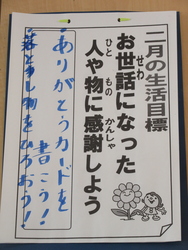 二月の生活目標
お世話になった
せわ
人や物に感謝しよう
ひと もの かんしゃ
ありがとうカードを
書こう!
落とし物をひろおう!